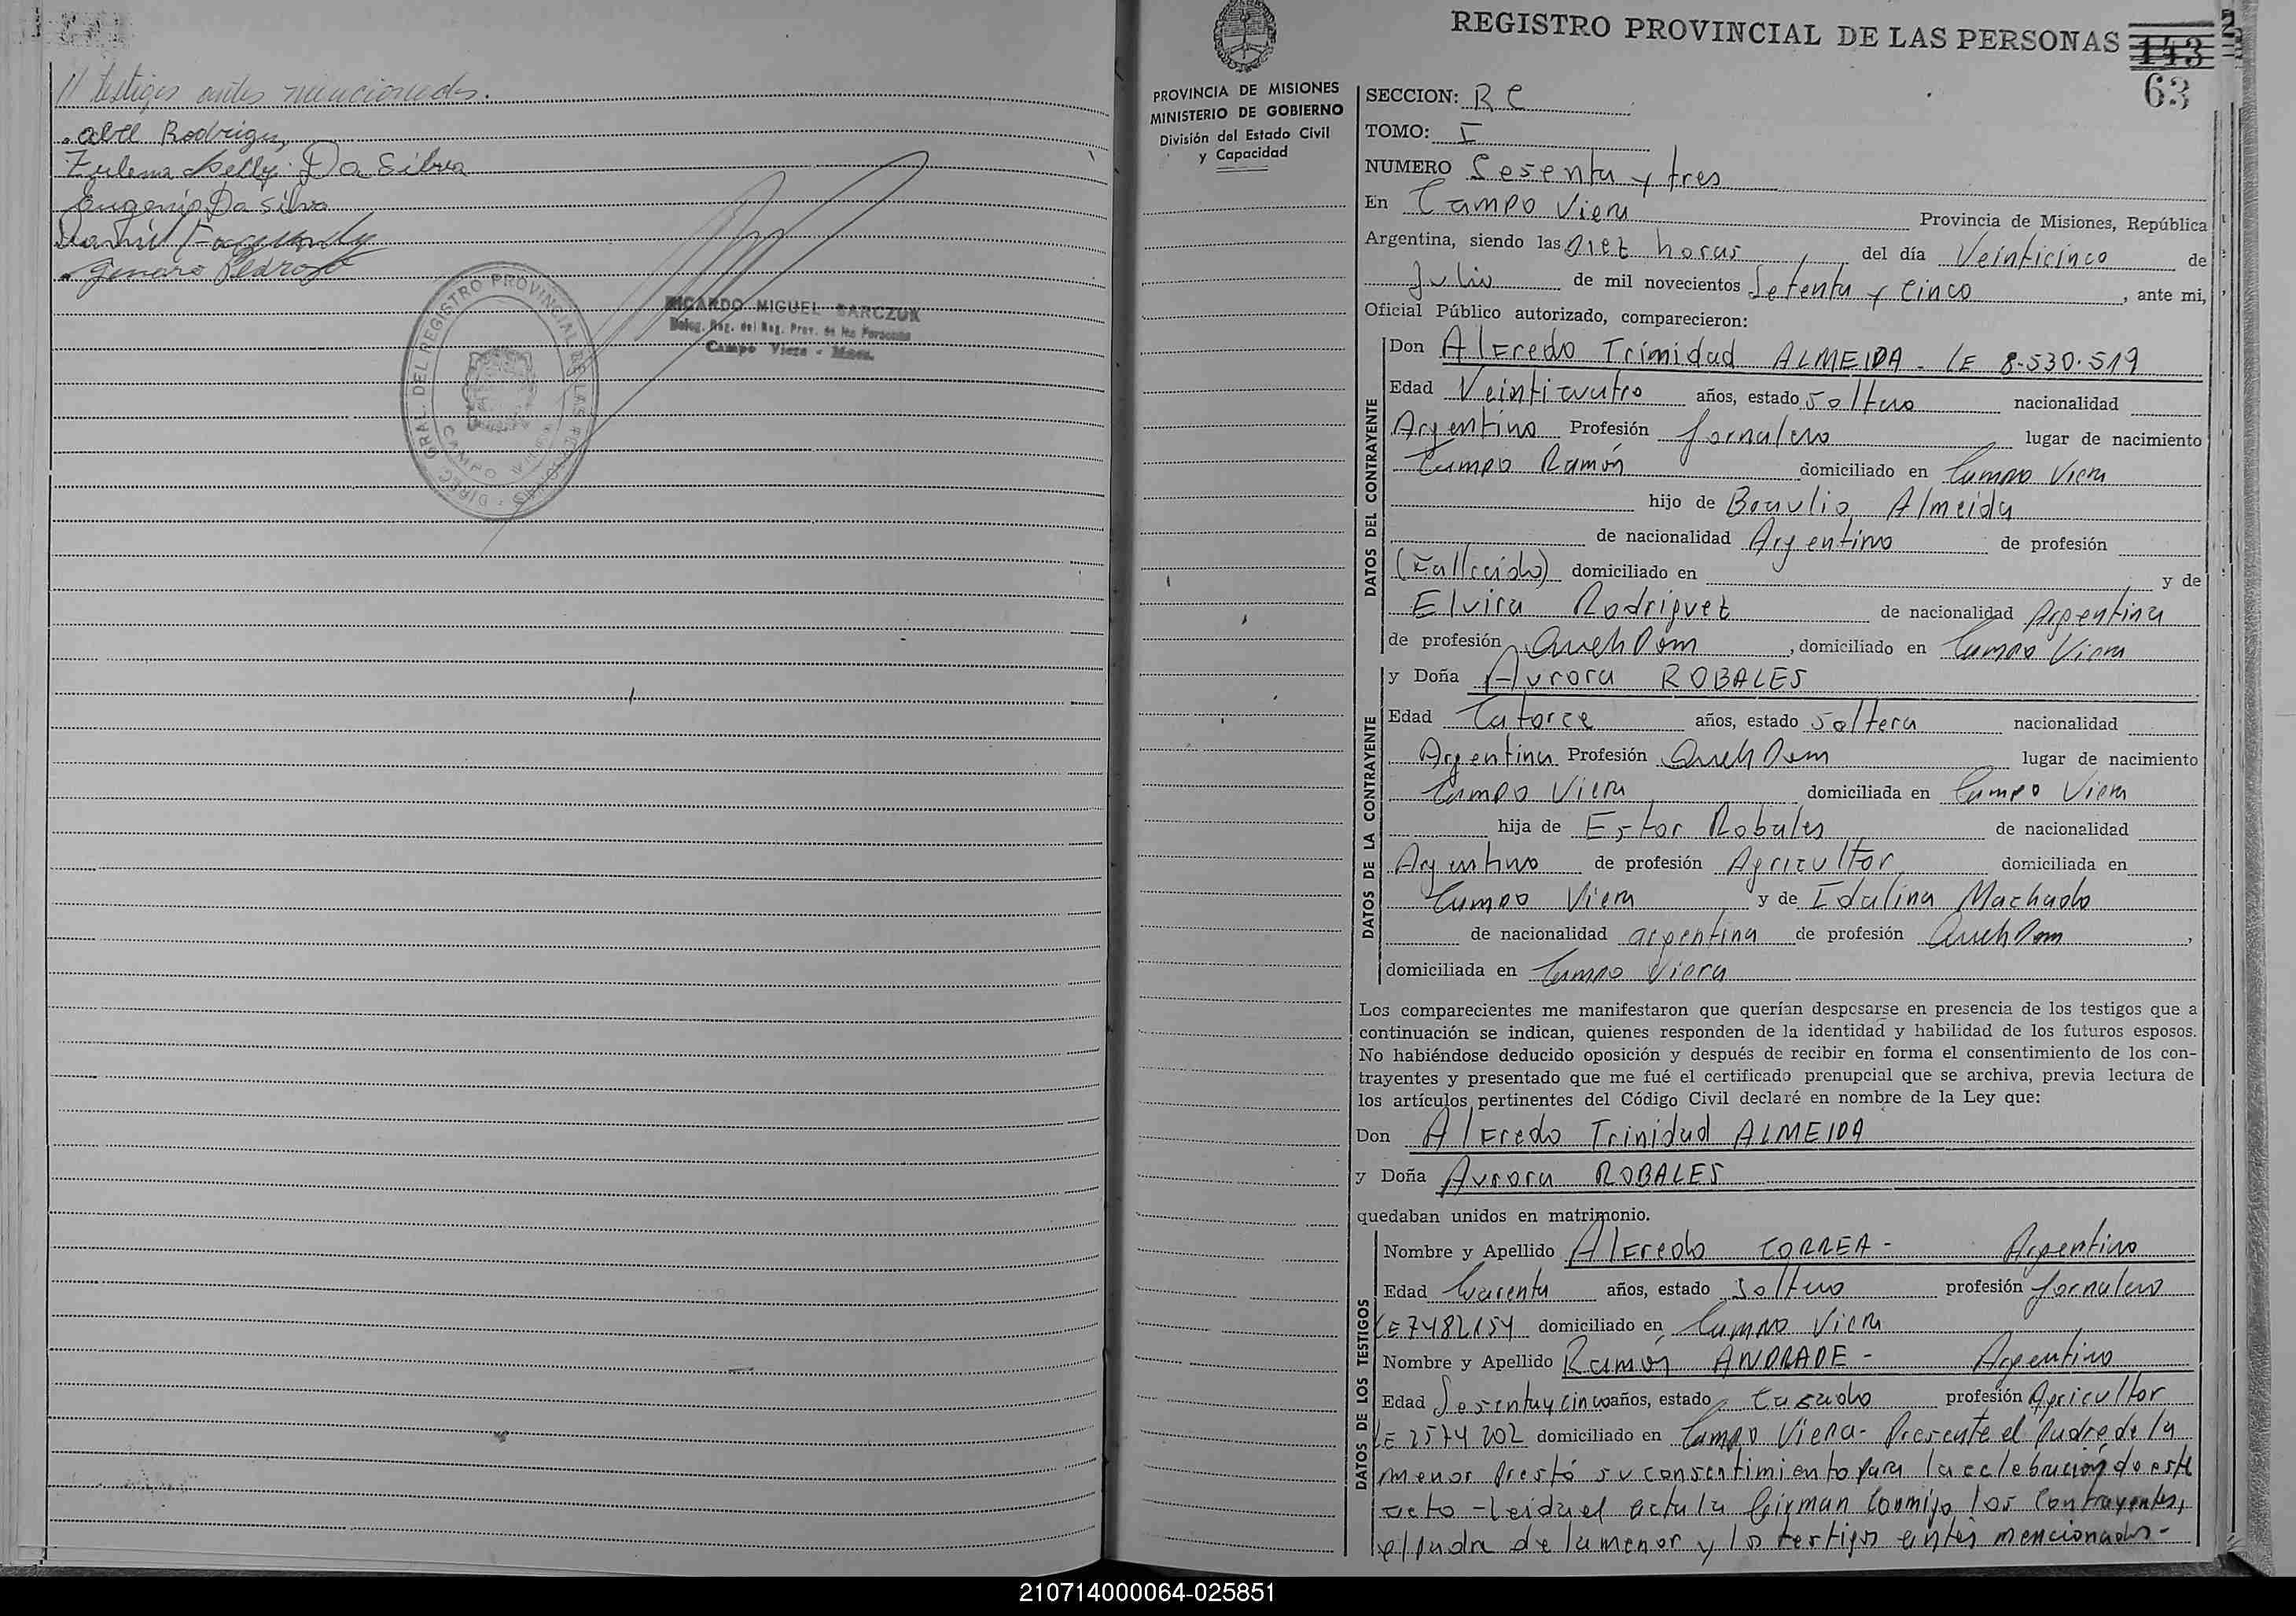 // testigos antes mencionados.
Abel Rodriguez
Zulema Nelly Da Silva
Eugenio Da Silva
Genaro Pedrozo
DIREC. GRAL. DEL REGISTRO PROVINCIAL DE LAS PERSONAS
CAMPO VIERA
RICARDO MIGUEL BARCZUK
Deleg. Reg. del Reg. Prov. de las Personas
Campo Viera - Mnes.
REGISTRO PROVINCIAL DE LAS PERSONAS 143
63
PROVINCIA DE MISIONES
MINISTERIO DE GOBIERNO
División del Estado Civil
y Capacidad
SECCION: R C
TOMO: I
NUMERO Sesenta y tres
En Campo Viera Provincia de Misiones, República
Argentina, siendo las Diez horas, del día Veinticinco de
Julio de mil novecientos Setenta y Cinco, ante mi,
Oficial Público autorizado, comparecieron:
DATOS DEL CONTRAYENTE
Don Alfredo Trinidad ALMEIDA - LE 8.530.519
Edad Veinticuatro años, estado soltero nacionalidad
Argentino Profesión Jornalero lugar de nacimiento
Campo Ramón domiciliado en Campo Viera
hijo de Braulio Almeida
de nacionalidad Argentino de profesión
(Fallecido) domiciliado en y de
Elvira Rodriguez de nacionalidad Argentina
de profesión QuehDom, domiciliado en Campo Viera
DATOS DE LA CONTRAYENTE
y Doña Aurora ROBALES
Edad Catorce años, estado soltera nacionalidad
Argentina Profesión QuehDom lugar de nacimiento
Campo Viera domiciliada en Campo Viera
hija de Estor Robales de nacionalidad
Argentino de profesión Agricultor domiciliada en
Campo Viera y de Idalina Machado
de nacionalidad argentina de profesión QuehDom,
domiciliada en Campo Viera
Los comparecientes me manifestaron que querían desposarse en presencia de los testigos que a
continuación se indican, quienes responden de la identidad y habilidad de los futuros esposos.
No habiéndose deducido oposición y después de recibir en forma el consentimiento de los con-
trayentes y presentado que me fué el certificado prenupcial que se archiva, previa lectura de
los artículos pertinentes del Código Civil declaré en nombre de la Ley que:
Don Alfredo Trinidad ALMEIDA
y Doña Aurora ROBALES
quedaban unidos en matrimonio.
DATOS DE LOS TESTIGOS
Nombre y Apellido Alfredo CORREA - Argentino
Edad Cuarenta años, estado soltero profesión Jornalero
LE 7482154 domiciliado en Campo Viera
Nombre y Apellido Ramón ANDRADE - Argentino
Edad Sesenta y cinco años, estado Casado profesión Agricultor
LE 2574202 domiciliado en Campo Viera - Presente el padre de la
menor prestó su consentimiento para la celebración de este
acto - leida el acta la firman conmigo los contrayentes,
el padre de la menor y los testigos antes mencionados -
210714000064-025851